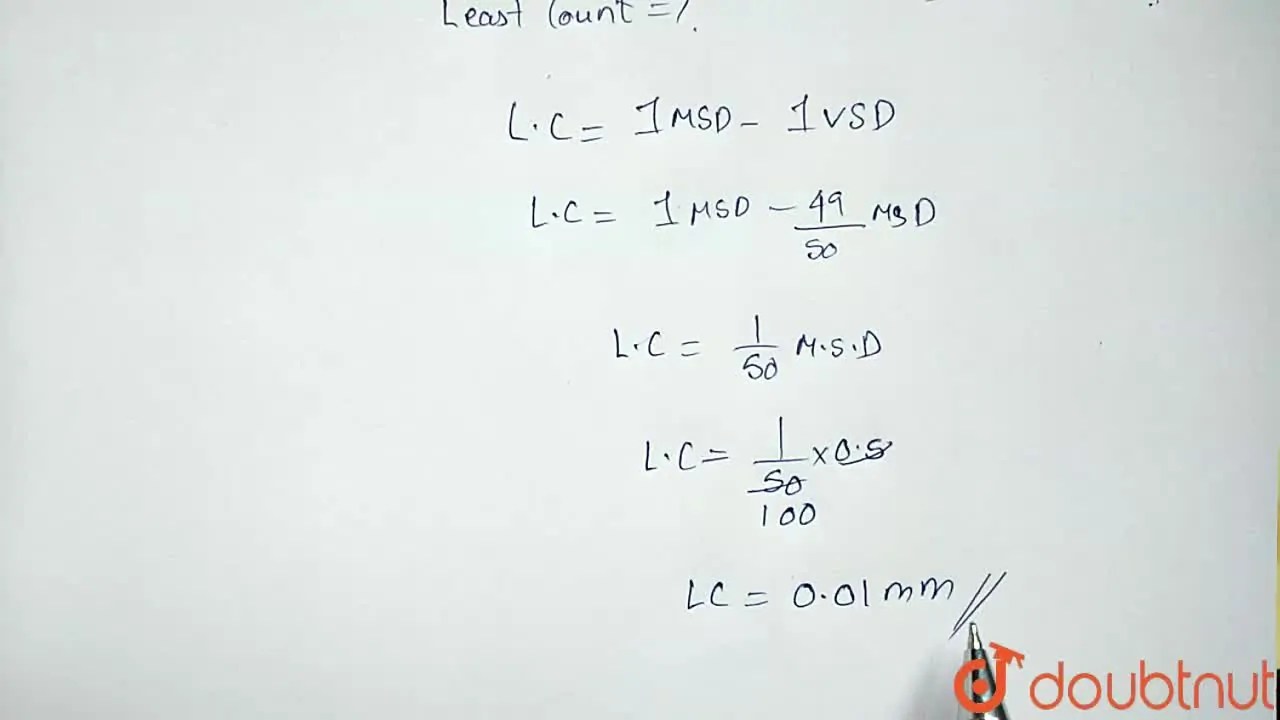 Least Count = ?
L.C = 1 MSD - 1 VSD
L.C = 1 MSD - 49/50 MSD
L.C = 1/50 M.S.D
L.C = 1/50 × 0.5
100
LC = 0.01 mm //
doubtnut